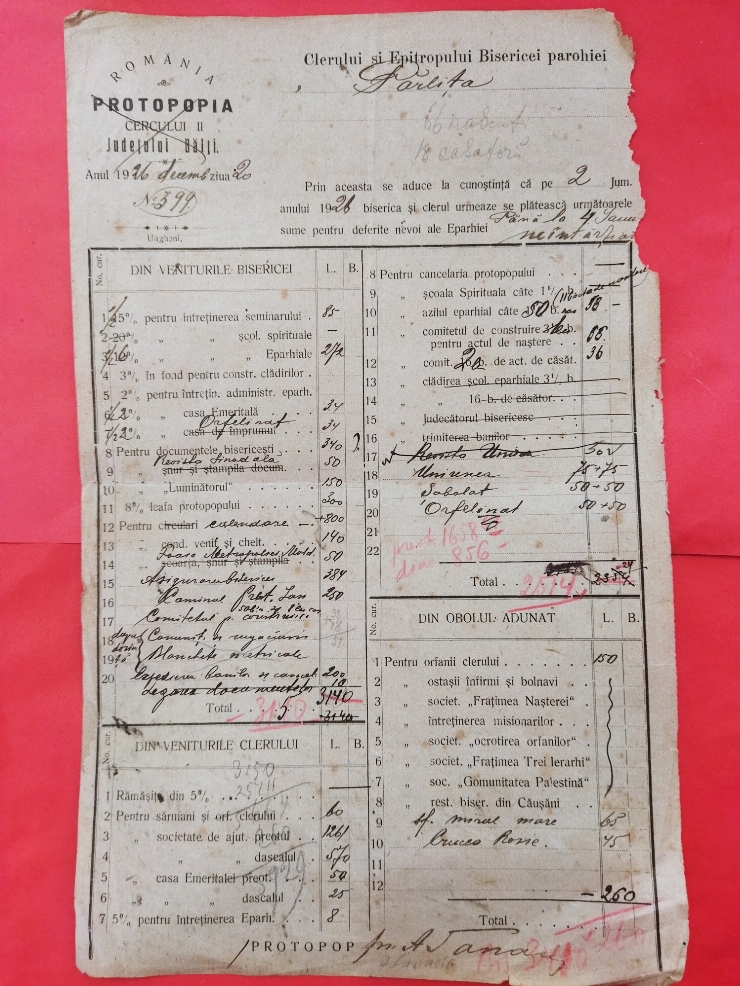 ROMÂNIA
PROTOPOPIA
CERCULUI II
Județului Bălți.
Anul 1926 decemb ziua 20
No 399
Ungheni.
Clerului si Epitropului Bisericei parohiei
Pârlita
66 nascuți
18 casatorii
Prin aceasta se aduce la cunoștință că pe 2 Jum.
anului 1926 biserica și clerul urmeaze se plătească următoarele
sume pentru deferite nevoi ale Eparhiei Până la 4 Ianu
No. cur. DIN VENITURILE BISERICEI L. B.
1 15% pentru întreținerea seminarului . 85
2 20% „ „ școl. spirituale —
3 10% „ „ Eparhiale 272
4 3% în fond pentru constr. clădirilor .
5 2% pentru întrețin. administr. eparh.
6 2% „ casa Emeritală . . . . 34
7 2% „ casa de împrumut Orfelinat . . . 34
8 Pentru documentele bisericești . . . 340
9 „ șnur și ștampila docum. Revista Sinodala 50
10 „ „Luminătorul" . . . . 150
11 8% leafa protopopului . . . . 300
12 Pentru circulari calendare — 800
13 „ cond. venit și chelt. . . . 140
14 „ scoarța, șnur și ștampila Foaia Metropoliei Mold. 50
15 Asigurarea bisericei 384
16 Caminul Pr. st. Ias 250
17 Comitetul p. construcție
18
19 Blanchete metricale
20 200
Legarea documentelor 10
Total . . . 3140
3150
3140
No. cur. DIN VENITURILE CLERULUI L. B.
3150
1 Rămășiță din 5% . . . . —
2 Pentru sărmani și orf. clerului . . . 60
3 „ societate de ajut. preotul . . 1261
4 „ „ „ dascalul . . 570
5 „ casa Emeritalei preot. . . . 50
6 „ „ „ dascalul . . 25
7 5% pentru întreținerea Eparh. . . . 8
8 Pentru cancelaria protopopului . . . —
9 „ școala Spirituala câte 1%
10 „ azilul eparhial câte 50 b. nas 33 -
11 „ comitetul de construire 2 b.
pentru actul de naștere . . 66
12 „ comit. 2 b. de act. de căsăt. 36
13 „ clădirea școl. eparhiale 3% b.
14 „ „ 16 b. de căsător. . .
15 „ Judecătorul bisericesc . . .
16 „ trimiterea banilor . . .
17 Revista Unirea
18 Unirunea 75+75
19 Sabolat 50+50
20 Orfelinat 50+50
21
22
preot 1658-
dasc. 856-
Total . . . 2514
No. cur. DIN OBOLUL ADUNAT L. B.
1 Pentru orfanii clerului . . . . 150
2 „ ostașii infirmi și bolnavi .
3 „ societ. „Frațimea Nașterei" .
4 „ întreținerea misionarilor . .
5 „ societ. „ocrotirea orfanilor" .
6 „ societ. „Frațimea Trei Ierarhi"
7 „ soc. „Gomunitatea Palestină"
8 „ rest. biser. din Căușani .
9 sf. mirul mare 65
10 Crucea Rosie. 45
11
12
- 260
Total . . . . . .
PROTOPOP